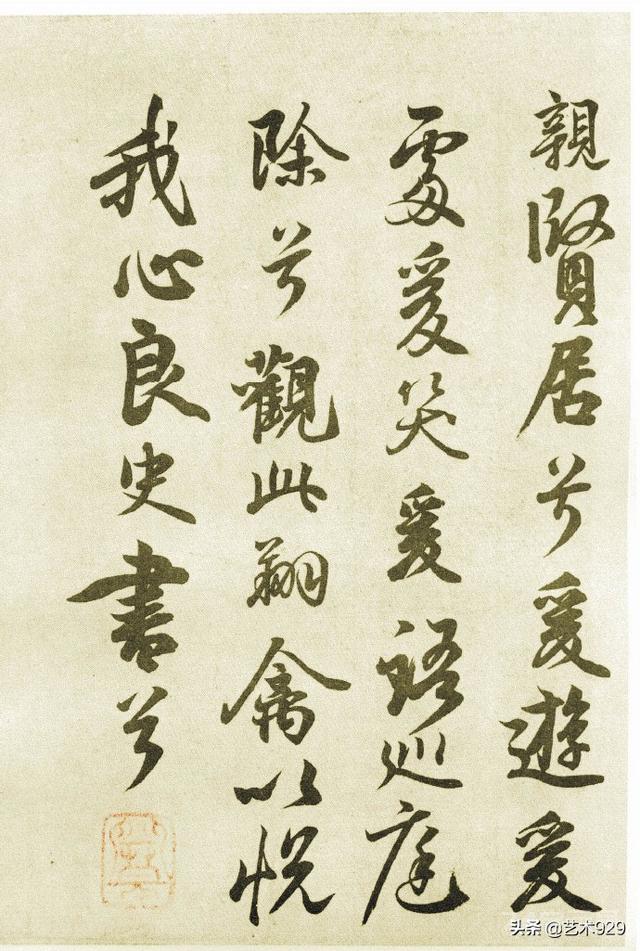 親賢居兮爰遊爰
處爰笑爰語巡庭
除兮觀此翔禽以悅
我心良史書兮
头条 @艺术929